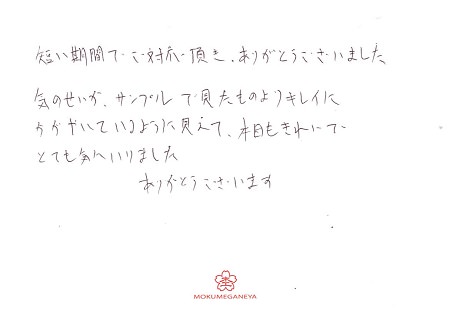 短い期間でご対応頂き、ありがとうございました
気のせいか、サンプルで見たものよりキレイに
かがやいているように見えて、木目もきれいで
とても気にいりました
ありがとうございます
杢
MOKUMEGANEYA